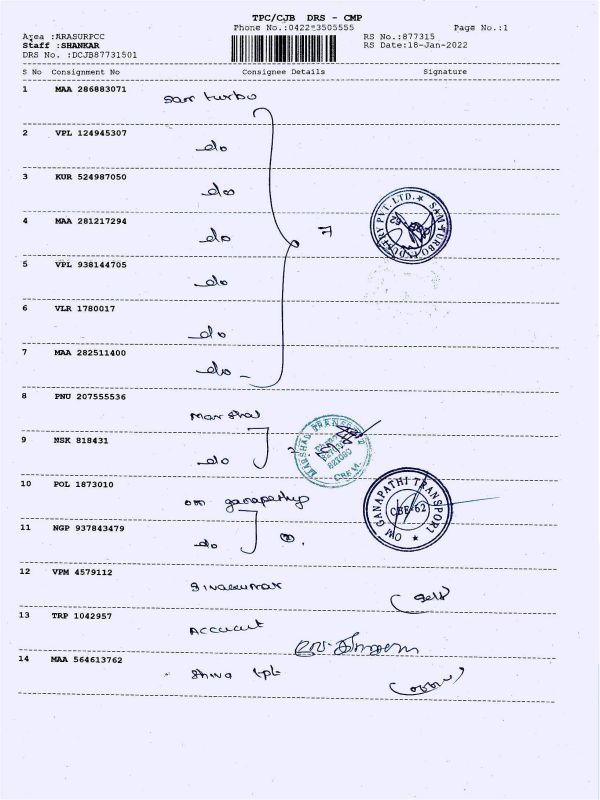 TPC/CJB DRS - CMP
Phone No.:0422-3505555
Page No.:1
Area :ARASURPCC
RS No.:877315
Staff :SHANKAR
RS Date:18-Jan-2022
DRS No. :DCJB87731501
S No Consignment No Consignee Details Signature
1 MAA 286883071
sam turbo
2 VPL 124945307
do
3 KUR 524987050
do
4 MAA 281217294
do
7
SAM TURBO INDUSTRY PVT. LTD.
5 VPL 938144705
do
6 VLR 1780017
do
7 MAA 282511400
do
8 PNU 207555536
Marshal
9 NSK 818431
do
MARSHAL TRANSPORT
10 POL 1873010
om ganapathy
OM GANAPATHI TRANSPORT
CBE-62
11 NGP 937843479
do
12 VPM 4579112
Sivakumar
(Self)
13 TRP 1042957
Account
14 MAA 564613762
Shiva tpt